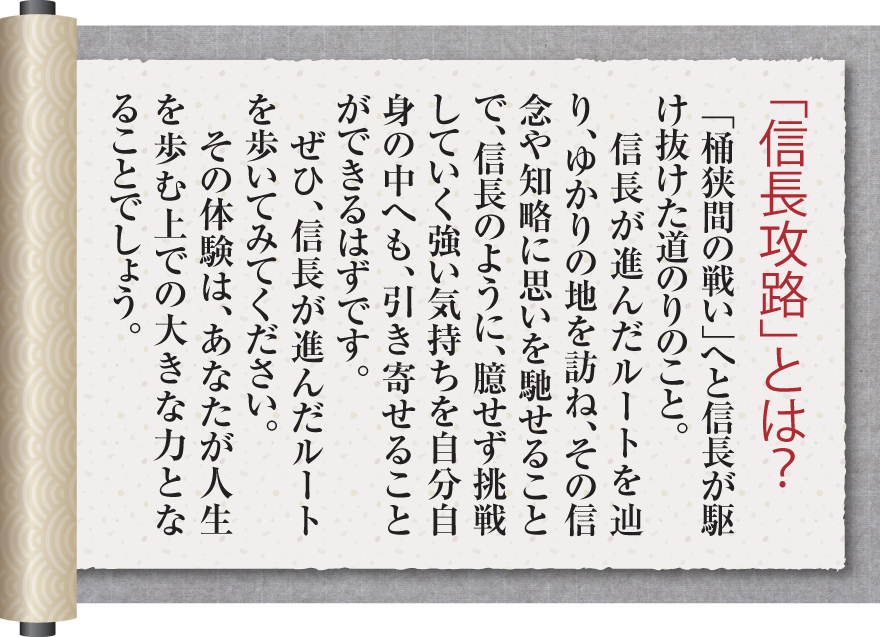 「信長攻路」とは？
「桶狭間の戦い」へと信長が駆
け抜けた道のりのこと。
信長が進んだルートを辿
り、ゆかりの地を訪ね、その信
念や知略に思いを馳せること
で、信長のように、臆せず挑戦
していく強い気持ちを自分自
身の中へも、引き寄せること
ができるはずです。
ぜひ、信長が進んだルート
を歩いてみてください。
その体験は、あなたが人生
を歩む上での大きな力とな
ることでしょう。